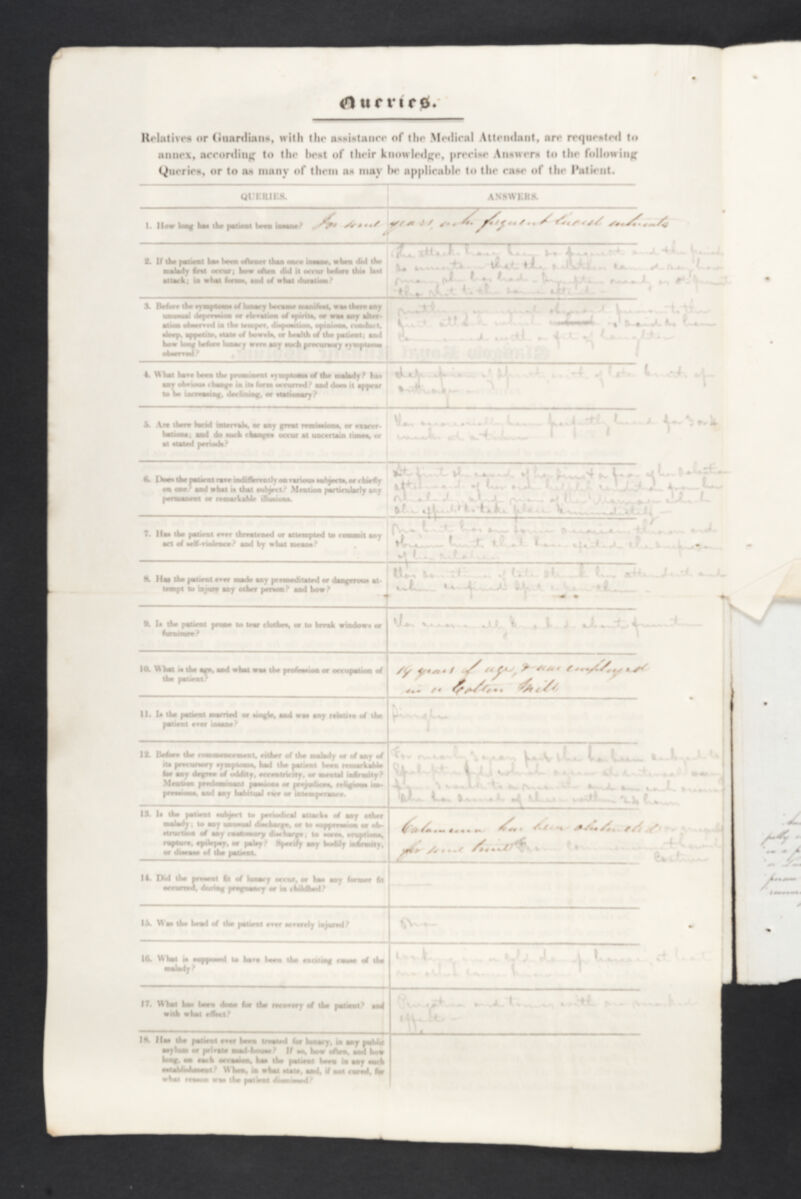 Queries.
Relatives or Guardians, with the assistance of the Medical Attendant, are requested to
annex, according to the best of their knowledge, precise Answers to the following
Queries, or to as many of them as may be applicable to the case of the Patient.
QUERIES.
ANSWERS.
1. How long has the patient been insane?
For some years, with frequent lucid intervals
2. If the patient has been oftener than once insane, when did the
malady first occur; how often did it occur before this last
attack; in what forms, and of what duration?
The attacks have been so frequent and the periods
so uncertain that the relatives cannot say how
many she has had
3. Before the symptoms of lunacy became manifest, was there any
unusual depression or elevation of spirits, or was any alter-
ation observed in the temper, disposition, opinions, conduct,
sleep, appetite, state of bowels, or health of the patient; and
how long before lunacy were any such precursory symptoms
observed?
nothing unusual observed previous to the
first attack which is said to have
commenced with a fit of laughter
4. What have been the prominent symptoms of the malady? has
any obvious change in its form occurred? and does it appear
to be increasing, declining, or stationary?
depression of spirits, with of late bursts of
5. Are there lucid intervals, or any great remissions, or exacer-
bations; and do such changes occur at uncertain times, or
at stated periods?
Has occasionally been perfectly lucid for 3 or 4
weeks at a time
6. Does the patient rave indifferently on various subjects, or chiefly
on one? and what is that subject? Mention particularly any
permanent or remarkable illusions.
At first she raved of her sins & a fear of her salvation
to take place immediately
7. Has the patient ever threatened or attempted to commit any
act of self-violence? and by what means?
No but has on some occasions thrown out
obscure hints that have excited the suspicion
of her relatives
8. Has the patient ever made any premeditated or dangerous at-
tempt to injure any other person? and how?
Has sometimes of late struck her attendants and
when confined spit upon them
9. Is the patient prone to tear clothes, or to break windows or
furniture?
Has occasionally knocked about furniture
10. What is the age, and what was the profession or occupation of
the patient?
19 years of age, & was employed
in a Cotton Mill
11. Is the patient married or single, and was any relative of the
patient ever insane?
Single
12. Before the commencement, either of the malady or of any of
its precursory symptoms, had the patient been remarkable
for any degree of oddity, eccentricity, or mental infirmity?
Mention predominant passions or prejudices, religious im-
pressions, and any habitual vice or intemperance.
For nearly 3 years past she has been subject to
Epileptic fits which occur at intervals
from 3 weeks to a month and on each occasion
she has several of these within 24 hours
13. Is the patient subject to periodical attacks of any other
malady; to any unusual discharge, or to suppression or ob-
struction of any customary discharge; to sores, eruptions,
rupture, epilepsy, or palsy? Specify any bodily infirmity,
or disease of the patient.
Catamenia has been obstructed or irregular
for some time
14. Did the present fit of lunacy occur, or has any former fit
occurred, during pregnancy or in childbed?
15. Was the head of the patient ever severely injured?
16. What is supposed to have been the exciting cause of the
malady?
working in a cold damp house, at least
no other cause known
17. What has been done for the recovery of the patient? and
with what effect?
Purgatives and tonics with no marked
effect
18. Has the patient ever been treated for lunacy, in any public
asylum or private mad-house? If so, how often, and how
long, on each occasion, has the patient been in any such
establishment? When, in what state, and, if not cured, for
what reason was the patient dismissed?